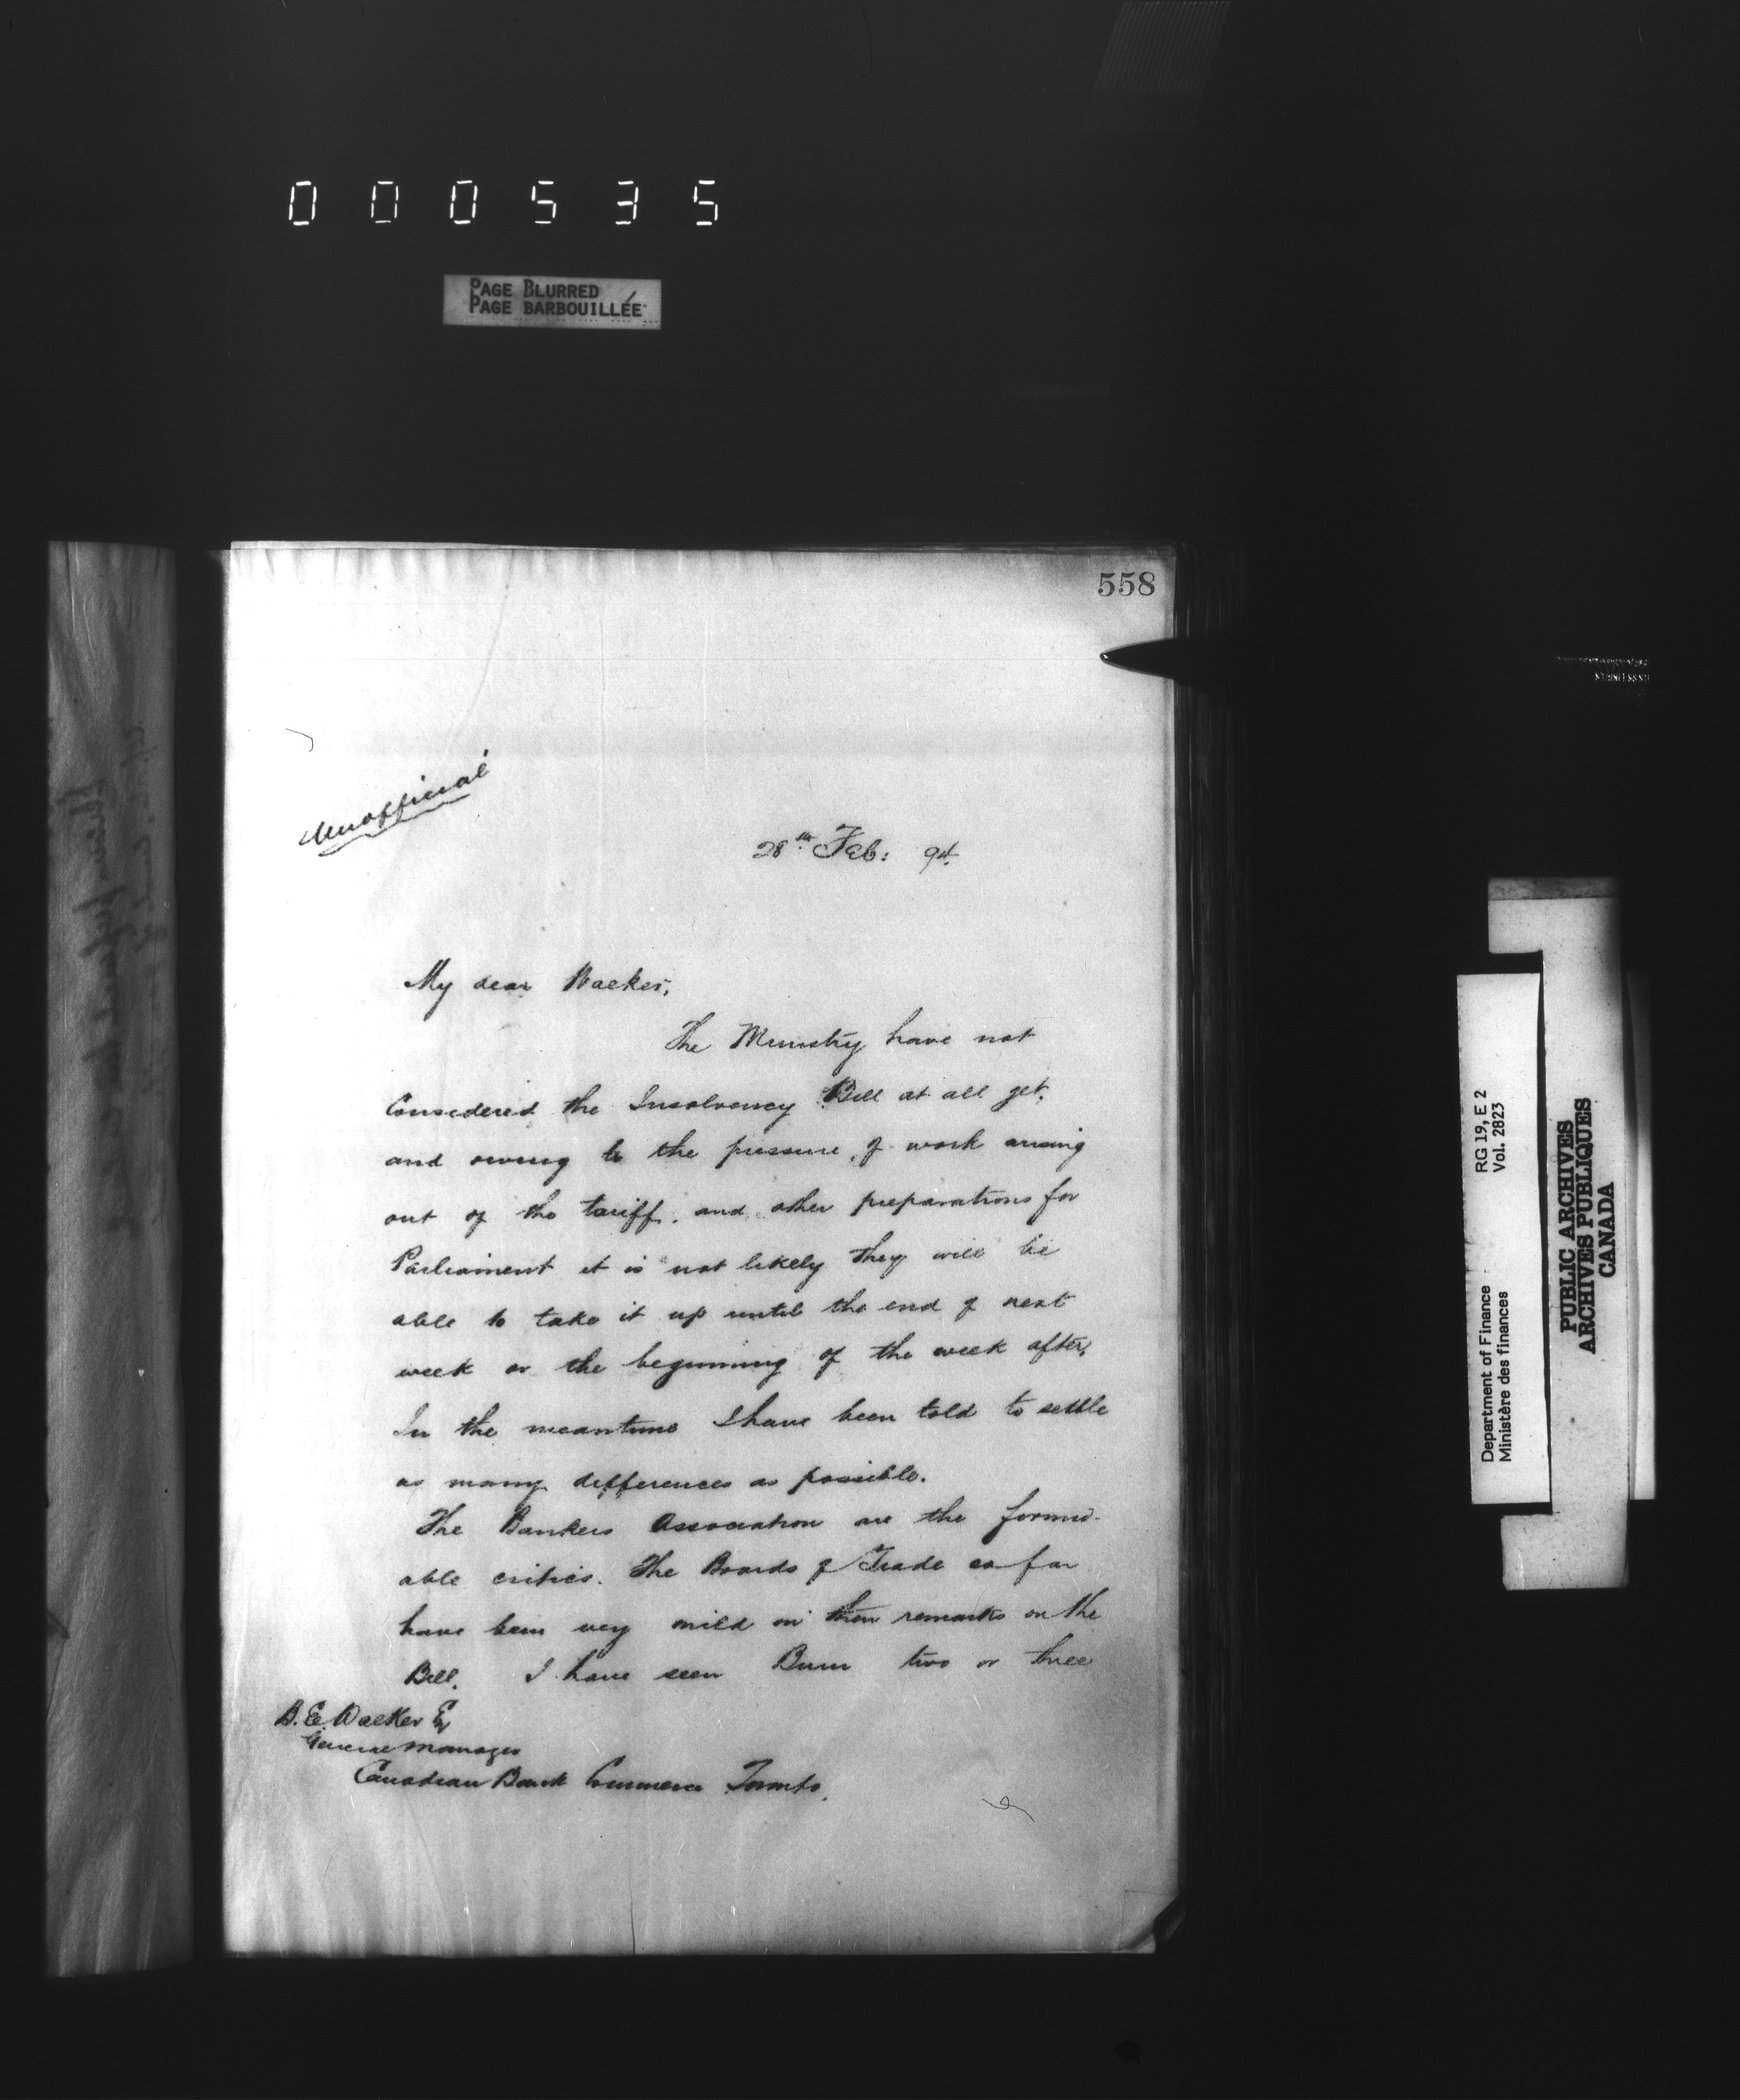 000535
PAGE BLURRED
PAGE BARBOUILLÉE
558
Unofficial
28th Feb: 94.
My dear Walker,
The Ministry have not
Considered the Insolvency Bill at all yet,
and owing to the pressure of work arising
out of the tariff, and other preparations for
Parliament it is not likely they will be
able to take it up until the end of next
week or the beginning of the week after.
In the meantime I have been told to settle
as many differences as possible.
The Bankers Association are the formid-
able critics. The Boards of Trade so far
have been very mild in their remarks on the
Bill. I have seen Burn two or three
B. E. Walker Esq
General Manager
Canadian Bank Commerce Toronto.
Department of Finance RG 19, E 2
Ministère des finances Vol. 2823
PUBLIC ARCHIVES
ARCHIVES PUBLIQUES
CANADA